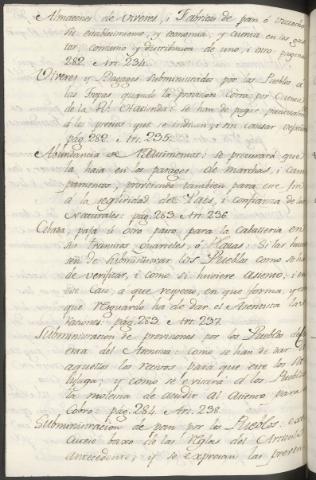 Almacenes de viveres, i Fabricas de pan ó
su establecimiento, y economía, y cuenta en los gas
tos, consumo y distribucion de uno, i otro: pagina
282. Art. 234.
Viveres y Bagages subministrados por los Pueblos à
las tropas quando la provision corra por Cuenta
de la Rl. Hacienda: se han de pagar
a los precios que se indican, i sin causar
pag. 282. Art. 235.
Abundancia de Mantenimentos: se procurará que
la haia en los parages de marchas, i cam
pamentos, providencias tambien para este fin
a la seguridad del Pais, i confianza de los
Naturales: pag. 283. Art. 236.
Cebada, paja ù otro pasto, para la caballeria en
sus transitos, Quarteles, ó Plazas. Si las hu
de subministrar los Pueblos como se ha
de verificar, i como si huviere Asiento, i en
este Caso, à que respeto, en que forma, y con
que resguardo ha de dar el Asentista las
raciones: pag. 283. Art. 237.
Subministracion de provisiones por los Pueblos
fuera del Asiento: como se han de dar
aquellos los recivos para que este los
y como se evitará á los Pueblos
la molestia de acudir al Asiento para su
Cobro: pag. 284. Art. 238.
Subministracion de pan por los Pueblos,
baxo de las reglas del Articulo
antecedente, y se expresan las